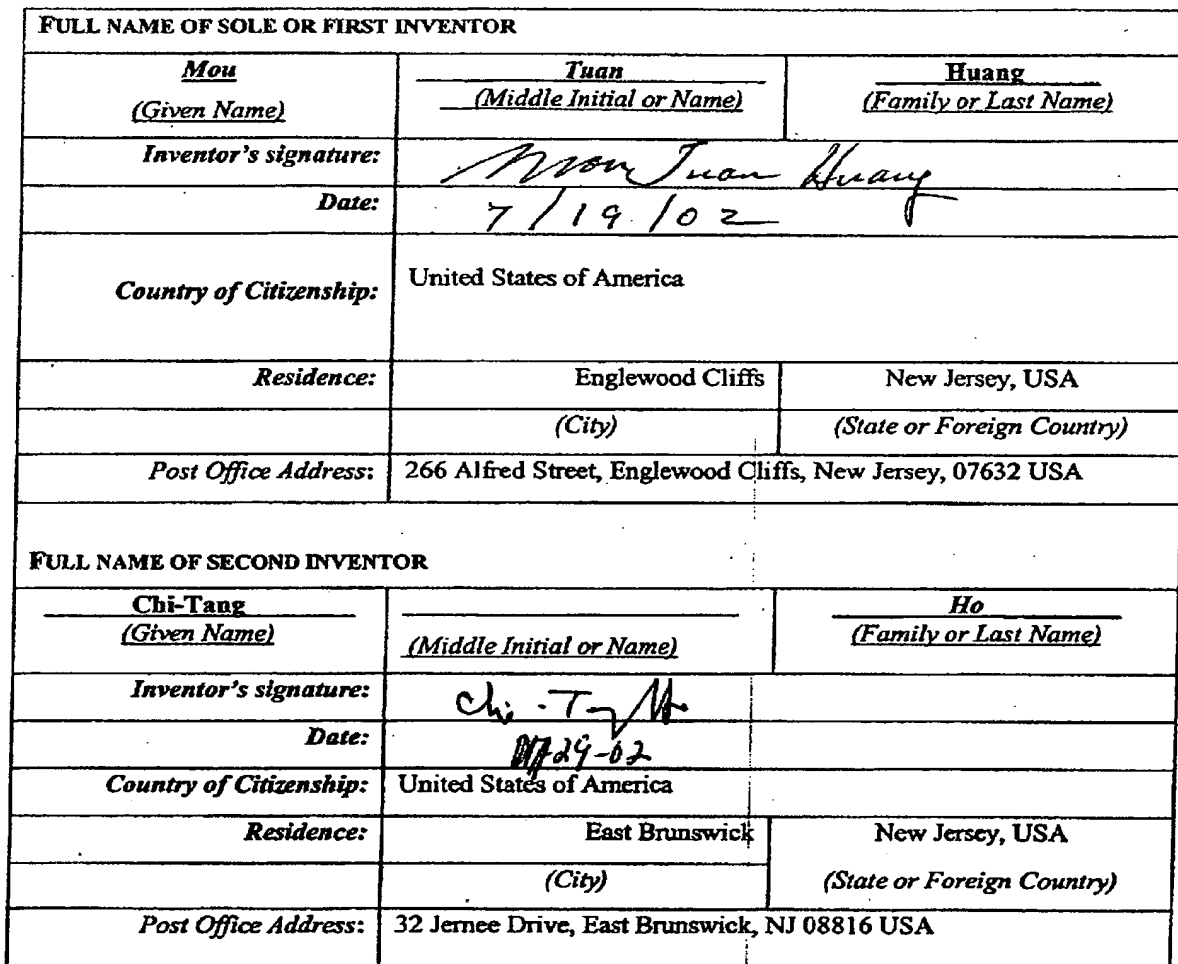 FULL NAME OF SOLE OR FIRST INVENTOR
Mou Tuan Huang
(Given Name) (Middle Initial or Name) (Family or Last Name)
Inventor's signature: Mou Tuan Huang
Date: 7/19/02
Country of Citizenship: United States of America
Residence: Englewood Cliffs New Jersey, USA
(City) (State or Foreign Country)
Post Office Address: 266 Alfred Street, Englewood Cliffs, New Jersey, 07632 USA
FULL NAME OF SECOND INVENTOR
Chi-Tang Ho
(Given Name) (Middle Initial or Name) (Family or Last Name)
Inventor's signature: Chi-Tang Ho
Date: 29-02
Country of Citizenship: United States of America
Residence: East Brunswick New Jersey, USA
(City) (State or Foreign Country)
Post Office Address: 32 Jernee Drive, East Brunswick, NJ 08816 USA